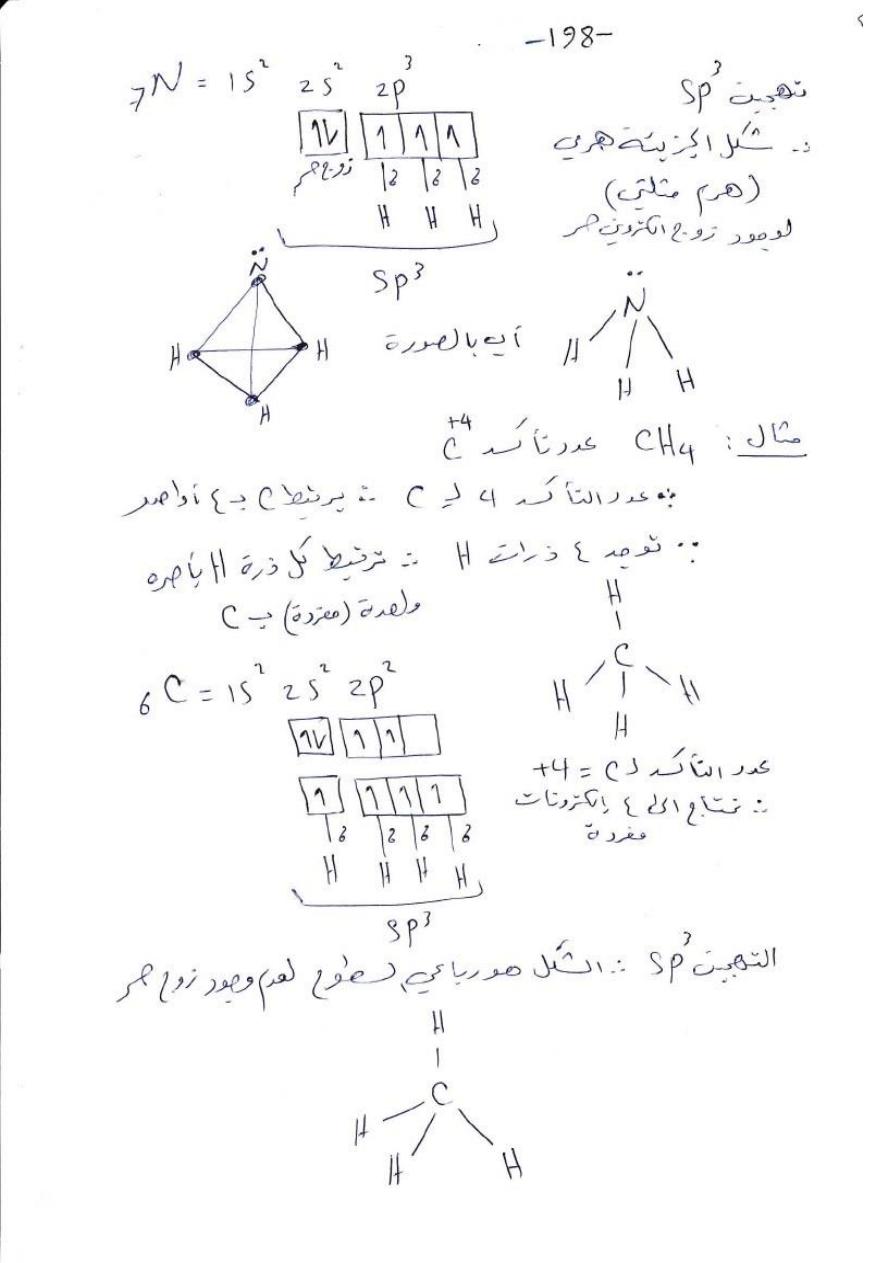 -198-
₇N = 1s² 2s² 2p³
تهجين sp³
1↓ 1 1 1
∴ شكل الجزيئة هرمي
زوج حر
(هرم مثلثي)
H H H
لوجود زوج الكتروني حر
sp³
N
H H
H
أي بالصورة
N
H H H
مثال : CH4 عدد تأكسد C⁺⁴
∵ عدد التأكسد 4 لـ C ∴ يرتبط C بـ ٤ أواصر
∵ توجد ٤ ذرات H ∴ ترتبط كل ذرة H بأصره
واحدة (مفردة) بـ C
H
C
H H
H
₆C = 1s² 2s² 2p²
1↓ 1 1
عدد التأكسد لـ C = +4
1 1 1 1
∴ نحتاج الى ٤ إلكترونات
مفردة
H H H H
sp³
التهجين sp³ ∴ الشكل هو رباعي السطوح لعدم وجود زوج حر
H
C
H H H